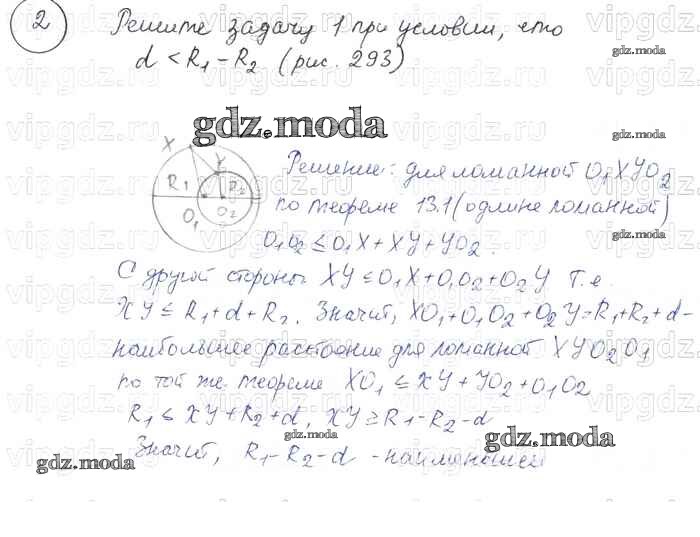 2 Решите задачу 1 при условии, что
d < R1 - R2 (рис. 293)
gdz.moda
gdz.moda
X
Y
R1
R2
O1
O2
Решение: для ломанной O1XYO2
по теореме 13.1 (о длине ломанной)
O1O2 ≤ O1X + XY + YO2.
С другой стороны XY ≤ O1X + O1O2 + O2Y т.е.
XY ≤ R1 + d + R2. Значит, XO1 + O1O2 + O2Y = R1 + R2 + d -
наибольшее расстояние для ломанной XYO2O1
по той же теореме XO1 ≤ XY + YO2 + O1O2
R1 ≤ XY + R2 + d, XY ≥ R1 - R2 - d
Значит, R1 - R2 - d - наименьшее
gdz.moda
gdz.moda
gdz.moda
gdz.moda